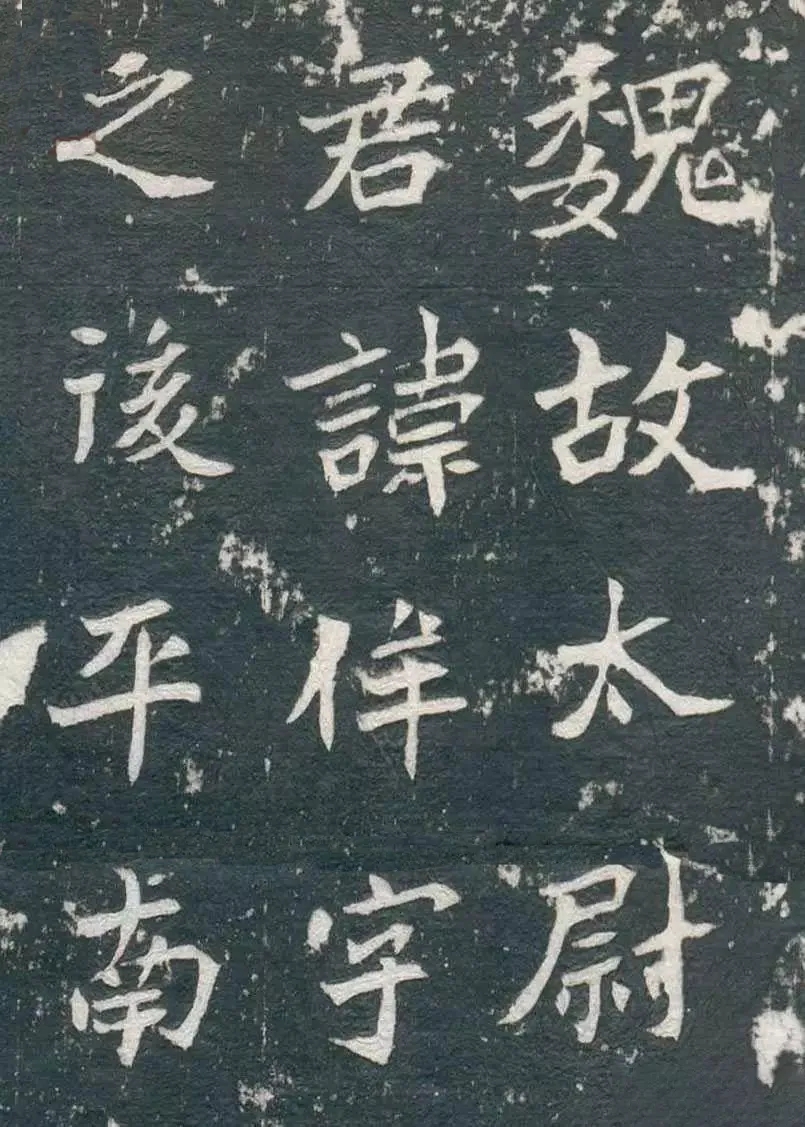 魏故太尉
君諱佯字
之後平南